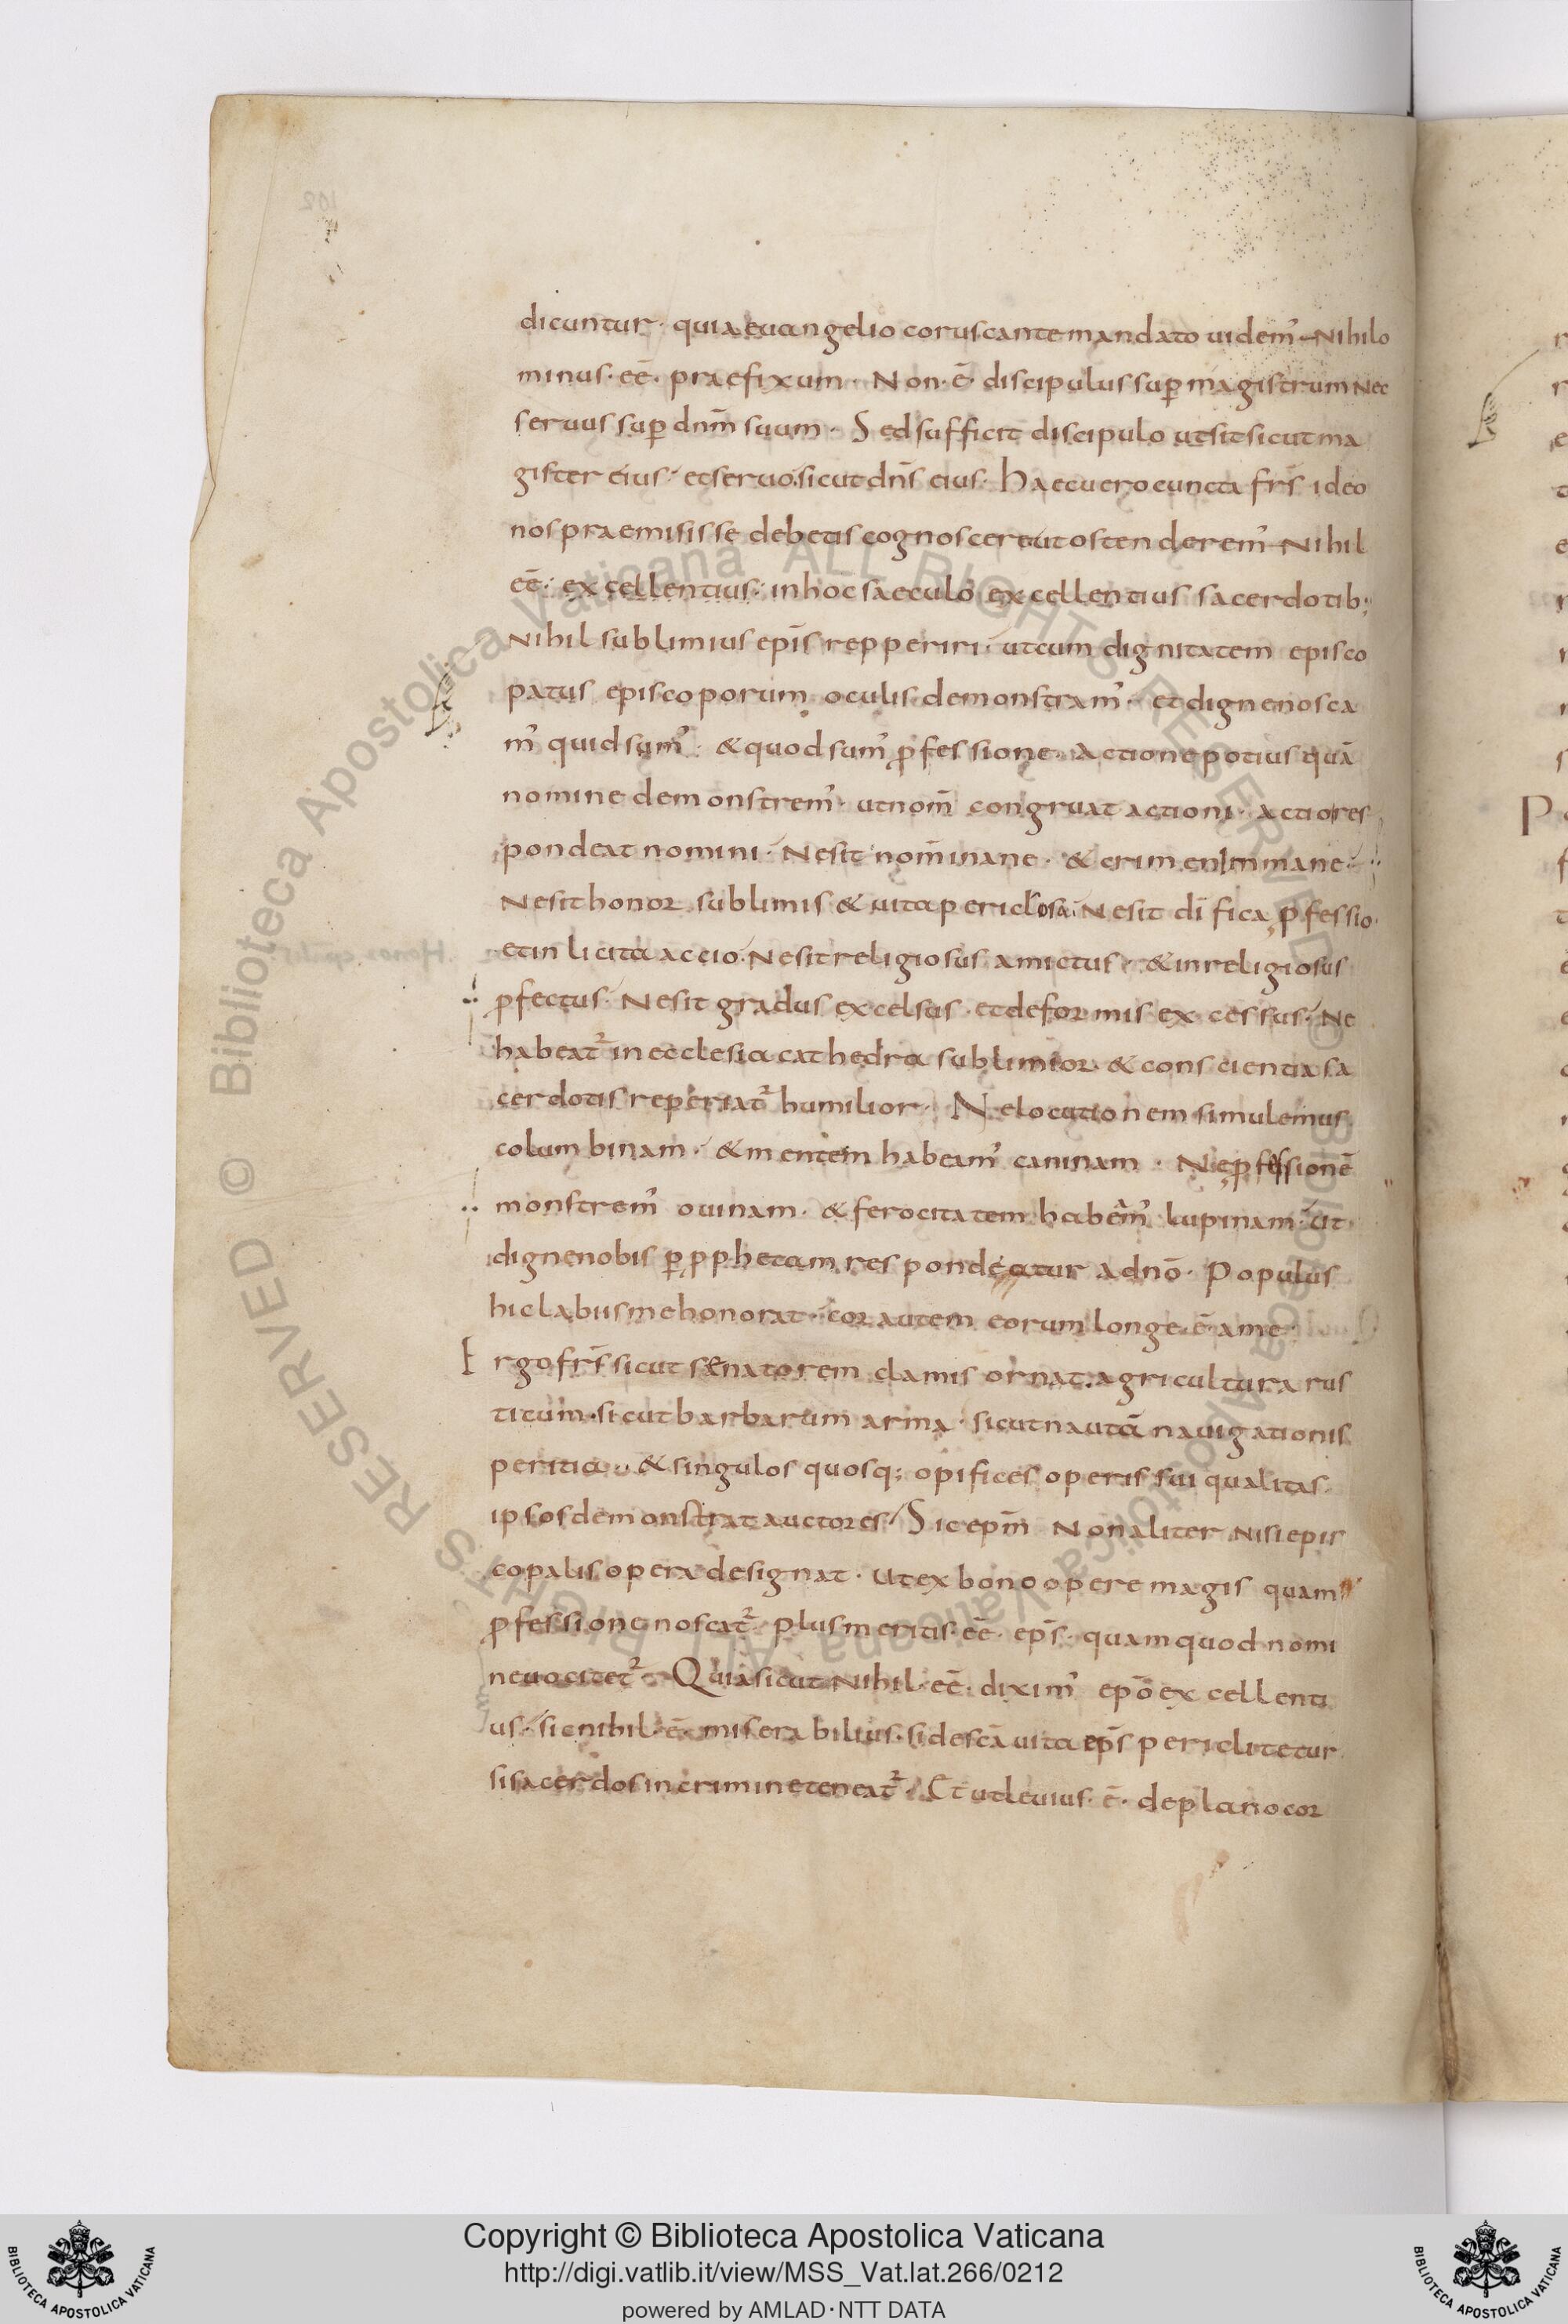 dicuntur· quia euangelio coruscante mandato uidem᾽ Nihilo
minus· eē· praefixum· Non· ē· discipulus sup̄ magistrum Nec
seruus sup̄ dnm̄ suum· Sed sufficit discipulo ut sit sicut ma
gister eius· et seruo sicut dn̄s eius· Haec uero cuncta frs̄ ideo
nos praemisisse debetis cognoscere ut ostenderem᾽ Nihil
eē· excellentius· in hoc saeculo excellentius sacerdotib;
Nihil sublimius epīs repperiri· ut cum dignitatem episco
patus episcoporum oculis demonstram᾽· et digne nosca
m᾽ quid sum᾽· & quod sum᾽ ꝓfessione· Actione potius quā
nomine demonstrem᾽· ut nom̄ congruat actioni· actio res
pondeat nomini· Ne sit nom̄ inane· & crimen inmane·
Ne sit honor sublimis & uita periclosa· Ne sit dīfica ꝓfessio·
et inlicita accio· Ne sit religiosus amictus· & inreligiosus
ꝓfectus· Ne sit gradus excelsus· et deformis excessus· Ne
habeat᾽ in ecclesia cathedra sublimior· & conscientia sa
cerdotis reperiat᾽ humilior· Ne locutionem simulemus
columbinam· & mentem habeam᾽ caninam· Ne ꝓfessionē
monstrem᾽ ouinam· & ferocitatem habem᾽ lupinam· ut
digne nobis ꝑ ꝓphetam respondeatur a dnō· Populus
hic labiis me honorat· cor autem eorum longe· ē· a me·
Ergo frs̄ sicut senatorem clamis ornat· agricultura rus
ticum· sicut barbarum arma· sicut nautā nauigationis
peritia· & singulos quosq; opifices operis sui qualitas
ipsos demonstrat auctores· Sic epm̄ Non aliter nisi epis
copalis opera designat· ut ex bono opere magis quam
ꝓfessione noscat᾽· plus meritis· eē· eps̄· quam quod nomi
ne uocitet᾽· Quia sicut Nihil· eē· dixim᾽ epō excellenti
us· sic nihil· ē· miserabilius· si de scā uita eps̄ periclitetur
si sacerdos in crimine teneat᾽· Et ut leuius· ē· de plano cor
102
Copyright © Biblioteca Apostolica Vaticana
http://digi.vatlib.it/view/MSS_Vat.lat.266/0212
powered by AMLAD·NTT DATA
BIBLIOTECA APOSTOLICA VATICANA
BIBLIOTECA APOSTOLICA VATICANA
© Biblioteca Apostolica Vaticana ALL RIGHTS RESERVED © Biblioteca Apostolica Vaticana ALL RIGHTS RESERVED